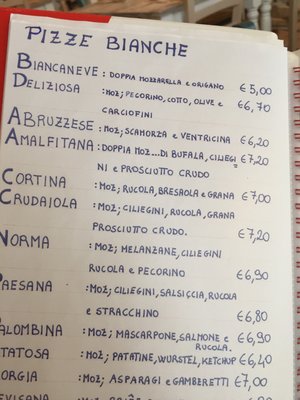 PIZZE BIANCHE
BIANCANEVE : DOPPIA MOZZARELLA e ORIGANO € 5,00
DELIZIOSA : MOZ; PECORINO, COTTO, OLIVE e € 6,70
CARCIOFINI
ABRUZZESE : MOZ; SCAMORZA e VENTRICINA € 6,20
AMALFITANA : DOPPIA MOZ... DI BUFALA, CILIEGI € 7,20
NI e PROSCIUTTO CRUDO
CORTINA : MOZ; RUCOLA, BRESAOLA e GRANA € 7,00
CRUDAIOLA : MOZ; CILIEGINI, RUCOLA, GRANA
PROSCIUTTO CRUDO. € 7,20
NORMA : MOZ; MELANZANE, CILIEGINI
RUCOLA e PECORINO € 6,90
PAESANA : MOZ; CILIEGINI, SALSICCIA, RUCOLA
e STRACCHINO € 6,80
PALOMBINA : MOZ; MASCARPONE, SALMONE e € 6,90
RUCOLA.
TATOSA : MOZ; PATATINE, WURSTEL, KETCHUP € 6,40
ORGIA : MOZ; ASPARAGI e GAMBERETTI € 7,00